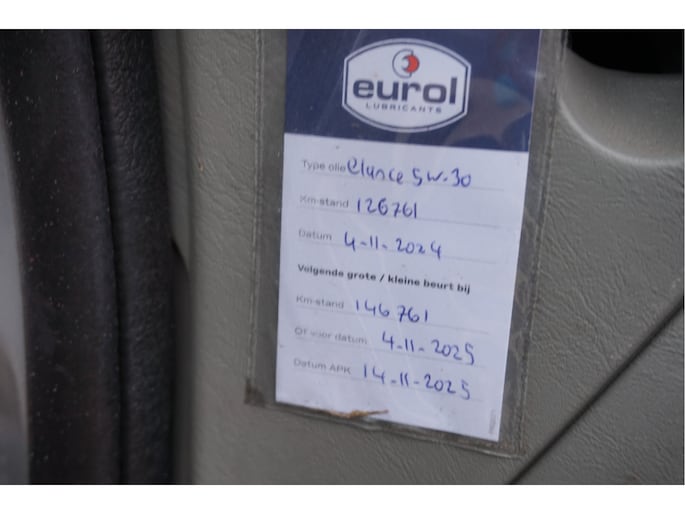 eurol
LUBRICANTS
Type olie Clynce 5w-30
Km-stand 126761
Datum 4-11-2024
Volgende grote / kleine beurt bij
Km-stand 146761
Of voor datum 4-11-2025
Datum APK 14-11-2025